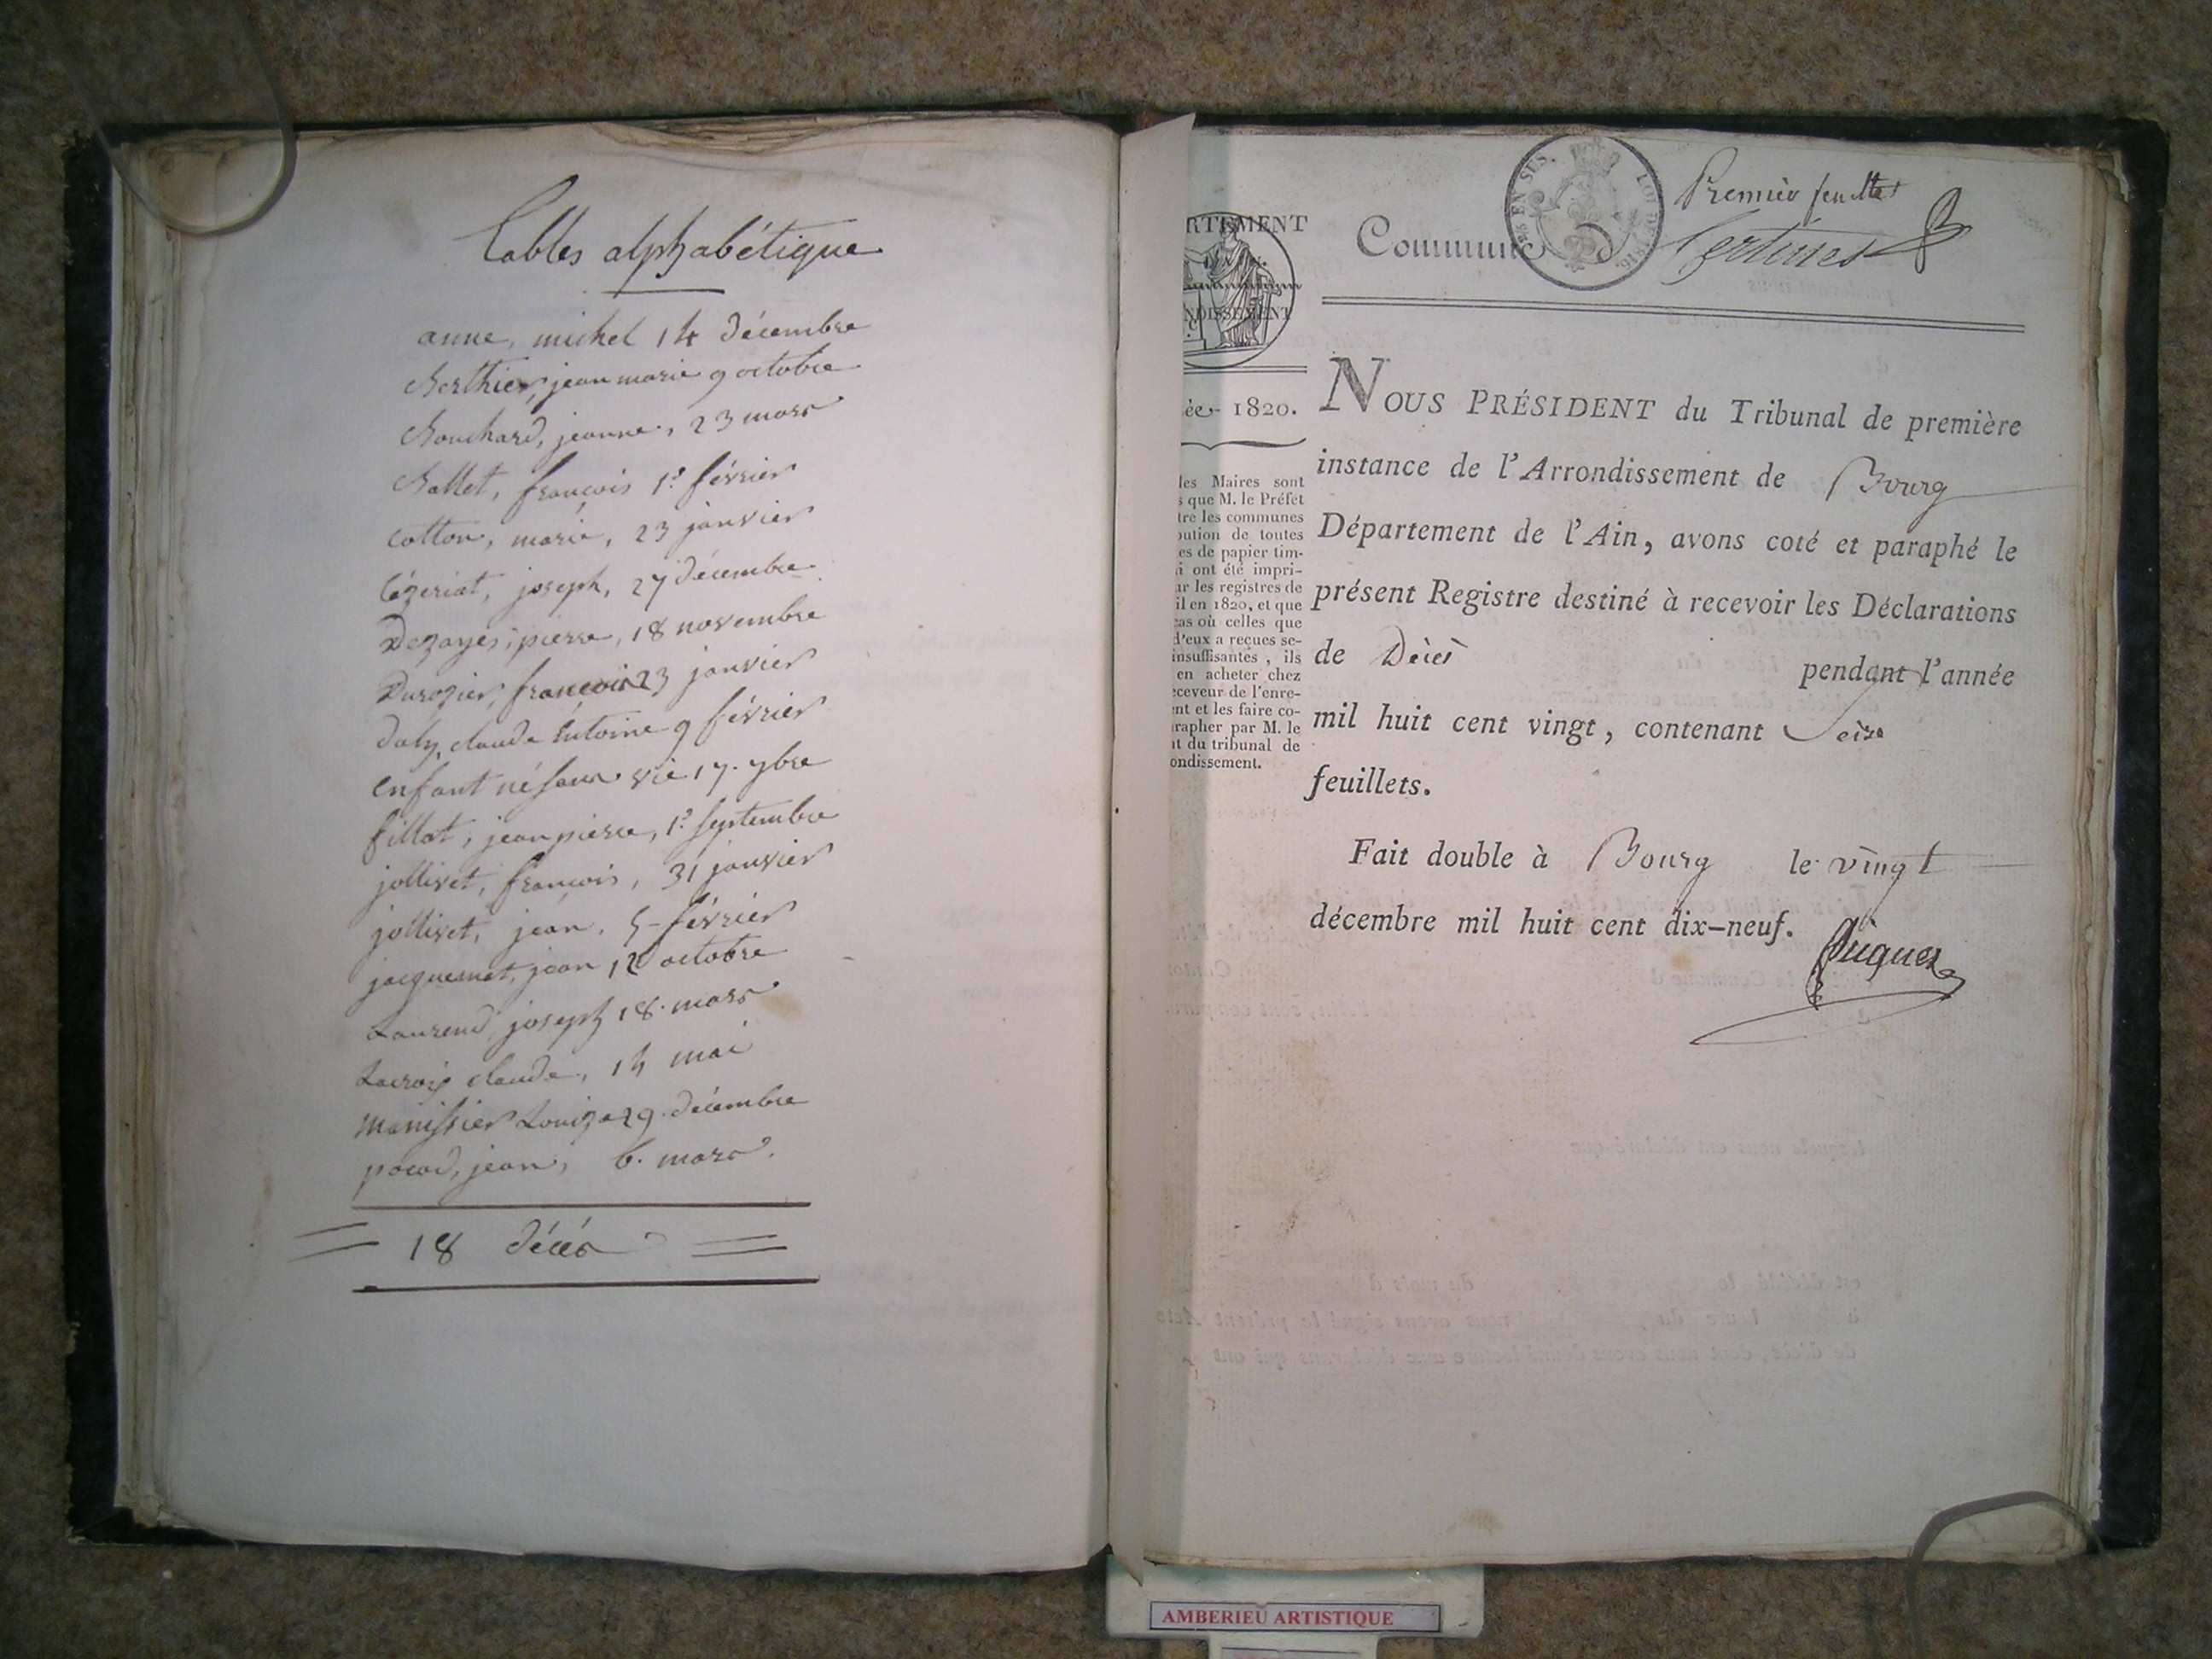 Tables alphabétique
anne, michel 14 décembre
Berthier, jean marie 9 octobre
Bouchard, jeanne, 23 mars
Ballet, françois 1er février
Cotton, marie, 23 janvier
Cézeriat, joseph, 27 décembre
Dezayes, pierre, 18 novembre
Durozier, françois 23 janvier
Daly, claude antoine 9 février
enfant né sans vie 17. 7bre
fillot, jean pierre, 1er septembre
jollivet, françois, 31 janvier
jollivet, jean, 5 février
jacquemet, jean, 12 octobre
Laurend, joseph 18. mars
Lacroix claude, 14 mai
manissier Louize 29. décembre
pocod, jean, 6. mars.
18 décés
RTEMENT
NDISSEMENT
ée 1820.
les Maires sont
s que M. le Préfet
tre les communes
bution de toutes
es de papier tim-
i ont été impri-
ur les registres de
il en 1820, et que
cas où celles que
d'eux a reçues se-
insuffisantes, ils
en acheter chez
eceveur de l'enre-
ent et les faire co-
rapher par M. le
nt du tribunal de
ondissement.
EN SUS. LOI DE 1816.
Premier feuillet
Commune de Certines
NOUS PRÉSIDENT du Tribunal de première
instance de l'Arrondissement de Bourg
Département de l'Ain, avons coté et paraphé le
présent Registre destiné à recevoir les Déclarations
de Décès pendant l'année
mil huit cent vingt, contenant Seize
feuillets.
Fait double à Bourg le vingt
décembre mil huit cent dix-neuf.
AMBERIEU ARTISTIQUE